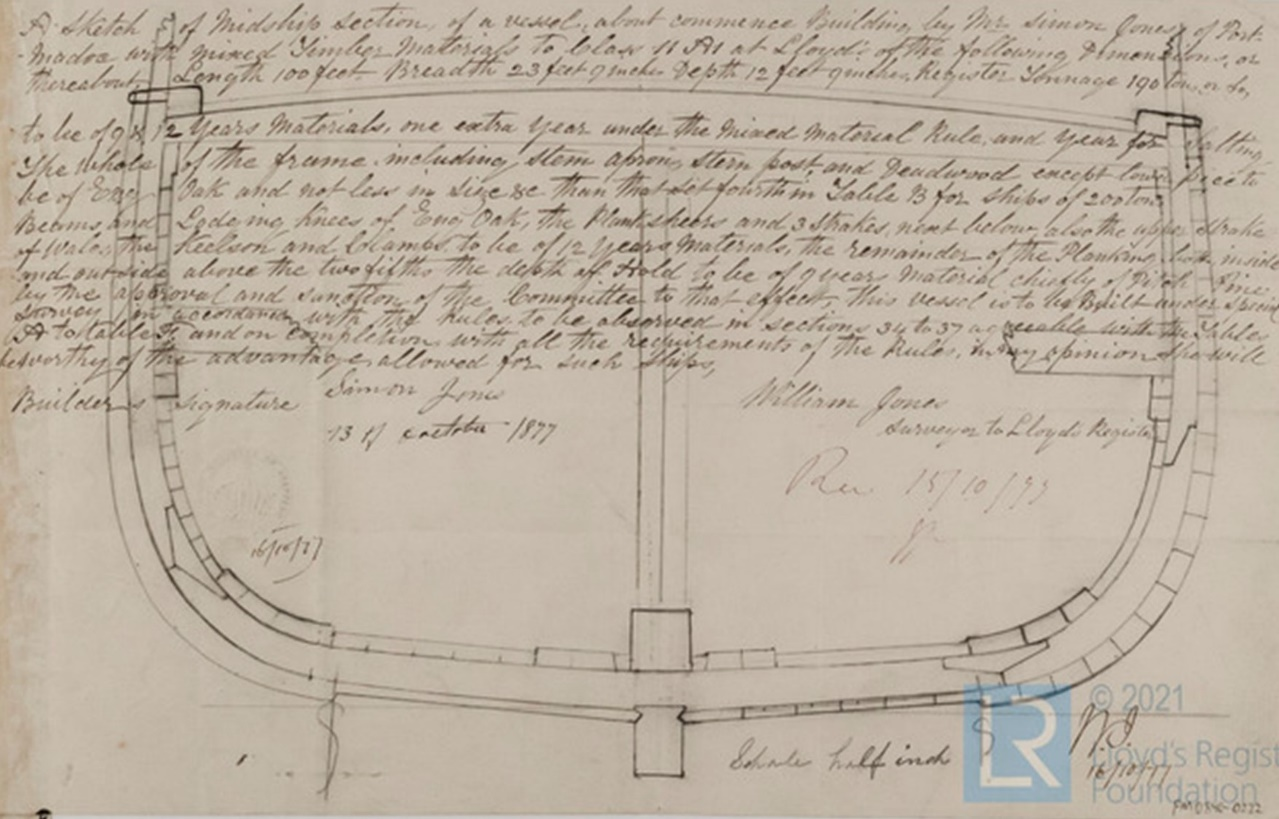 A Sketch of Midship section, of a vessel, about commence Building, by Mr. Simon Jones, of Port-
-madoc with mixed Timber Materials to Class 11 A1 at Lloyd's of the following Dimensions, or
thereabout, Length 100 feet Breadth 23 feet 9 inches Depth 12 feet 9 inches, Register Tonnage 190 tons, or so,
to be of 9 & 12 Years Materials, one extra Year under the Mixed Material Rule, and Year for Salting,
The Whole of the frame including stem apron, stern post, and Deadwood except lower piece to
be of Eng Oak and not less in Size &c than that set fourth in Table B for Ships of 200 tons
Beams, and Lodging knees of Eng Oak, the Planksheers and 3 Strakes, next below, also the upper Strake
of Wales, the Keelson and Clamps, to be of 12 Years Materials, the remainder of the Planking, both inside
and outside above the two fifths the depth of Hold to be of 9 years Material chiefly of Pitch Pine
by the approval and sanction of the Committee to that effect, this vessel is to be Built under Special
Survey in accordance with the Rules, to be observed in sections 34 to 37 agreeable with the Tables
A to table and on completion with all the requirements of the Rules, in my opinion she will
be worthy of the advantage allowed for such ships,
Builder's Signature Simon Jones William Jones
13 of October 1877 Surveyor to Lloyd's Register
Rec. 15/10/77
16/10/77
Schale half inch
WJ
16/10/77
© 2021
LR
Lloyd's Regist
Foundation